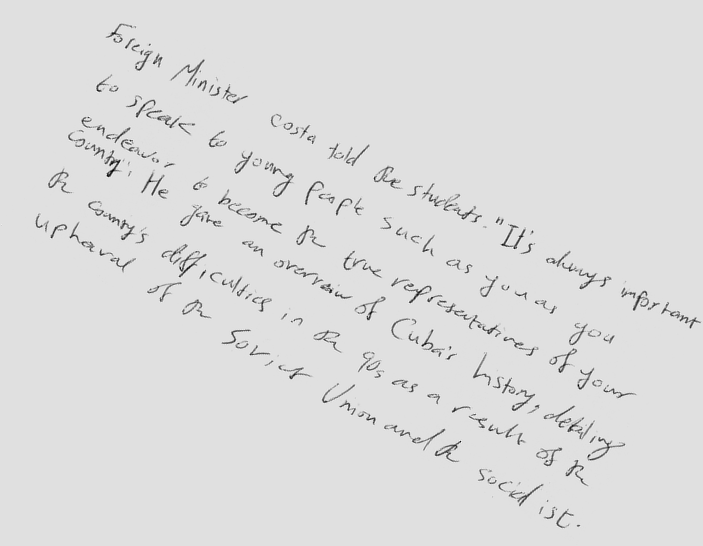 Foreign Minister Costa told the students. "It's always important
to speak to young people such as you as you
endeavor to become the true representatives of your
country". He gave an overview of Cuba's history, detailing
the country's difficulties in the 90s as a result of the
upheaval of the Soviet Union and the socialist.